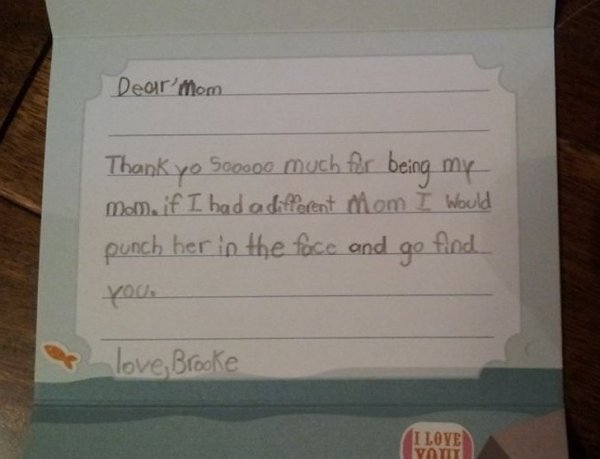 Dear'Mom
Thank yo Sooooo much for being my
mom. if I had a different Mom I Would
punch her in the face and go find
you.
love, Brooke
I LOVE
YOU!